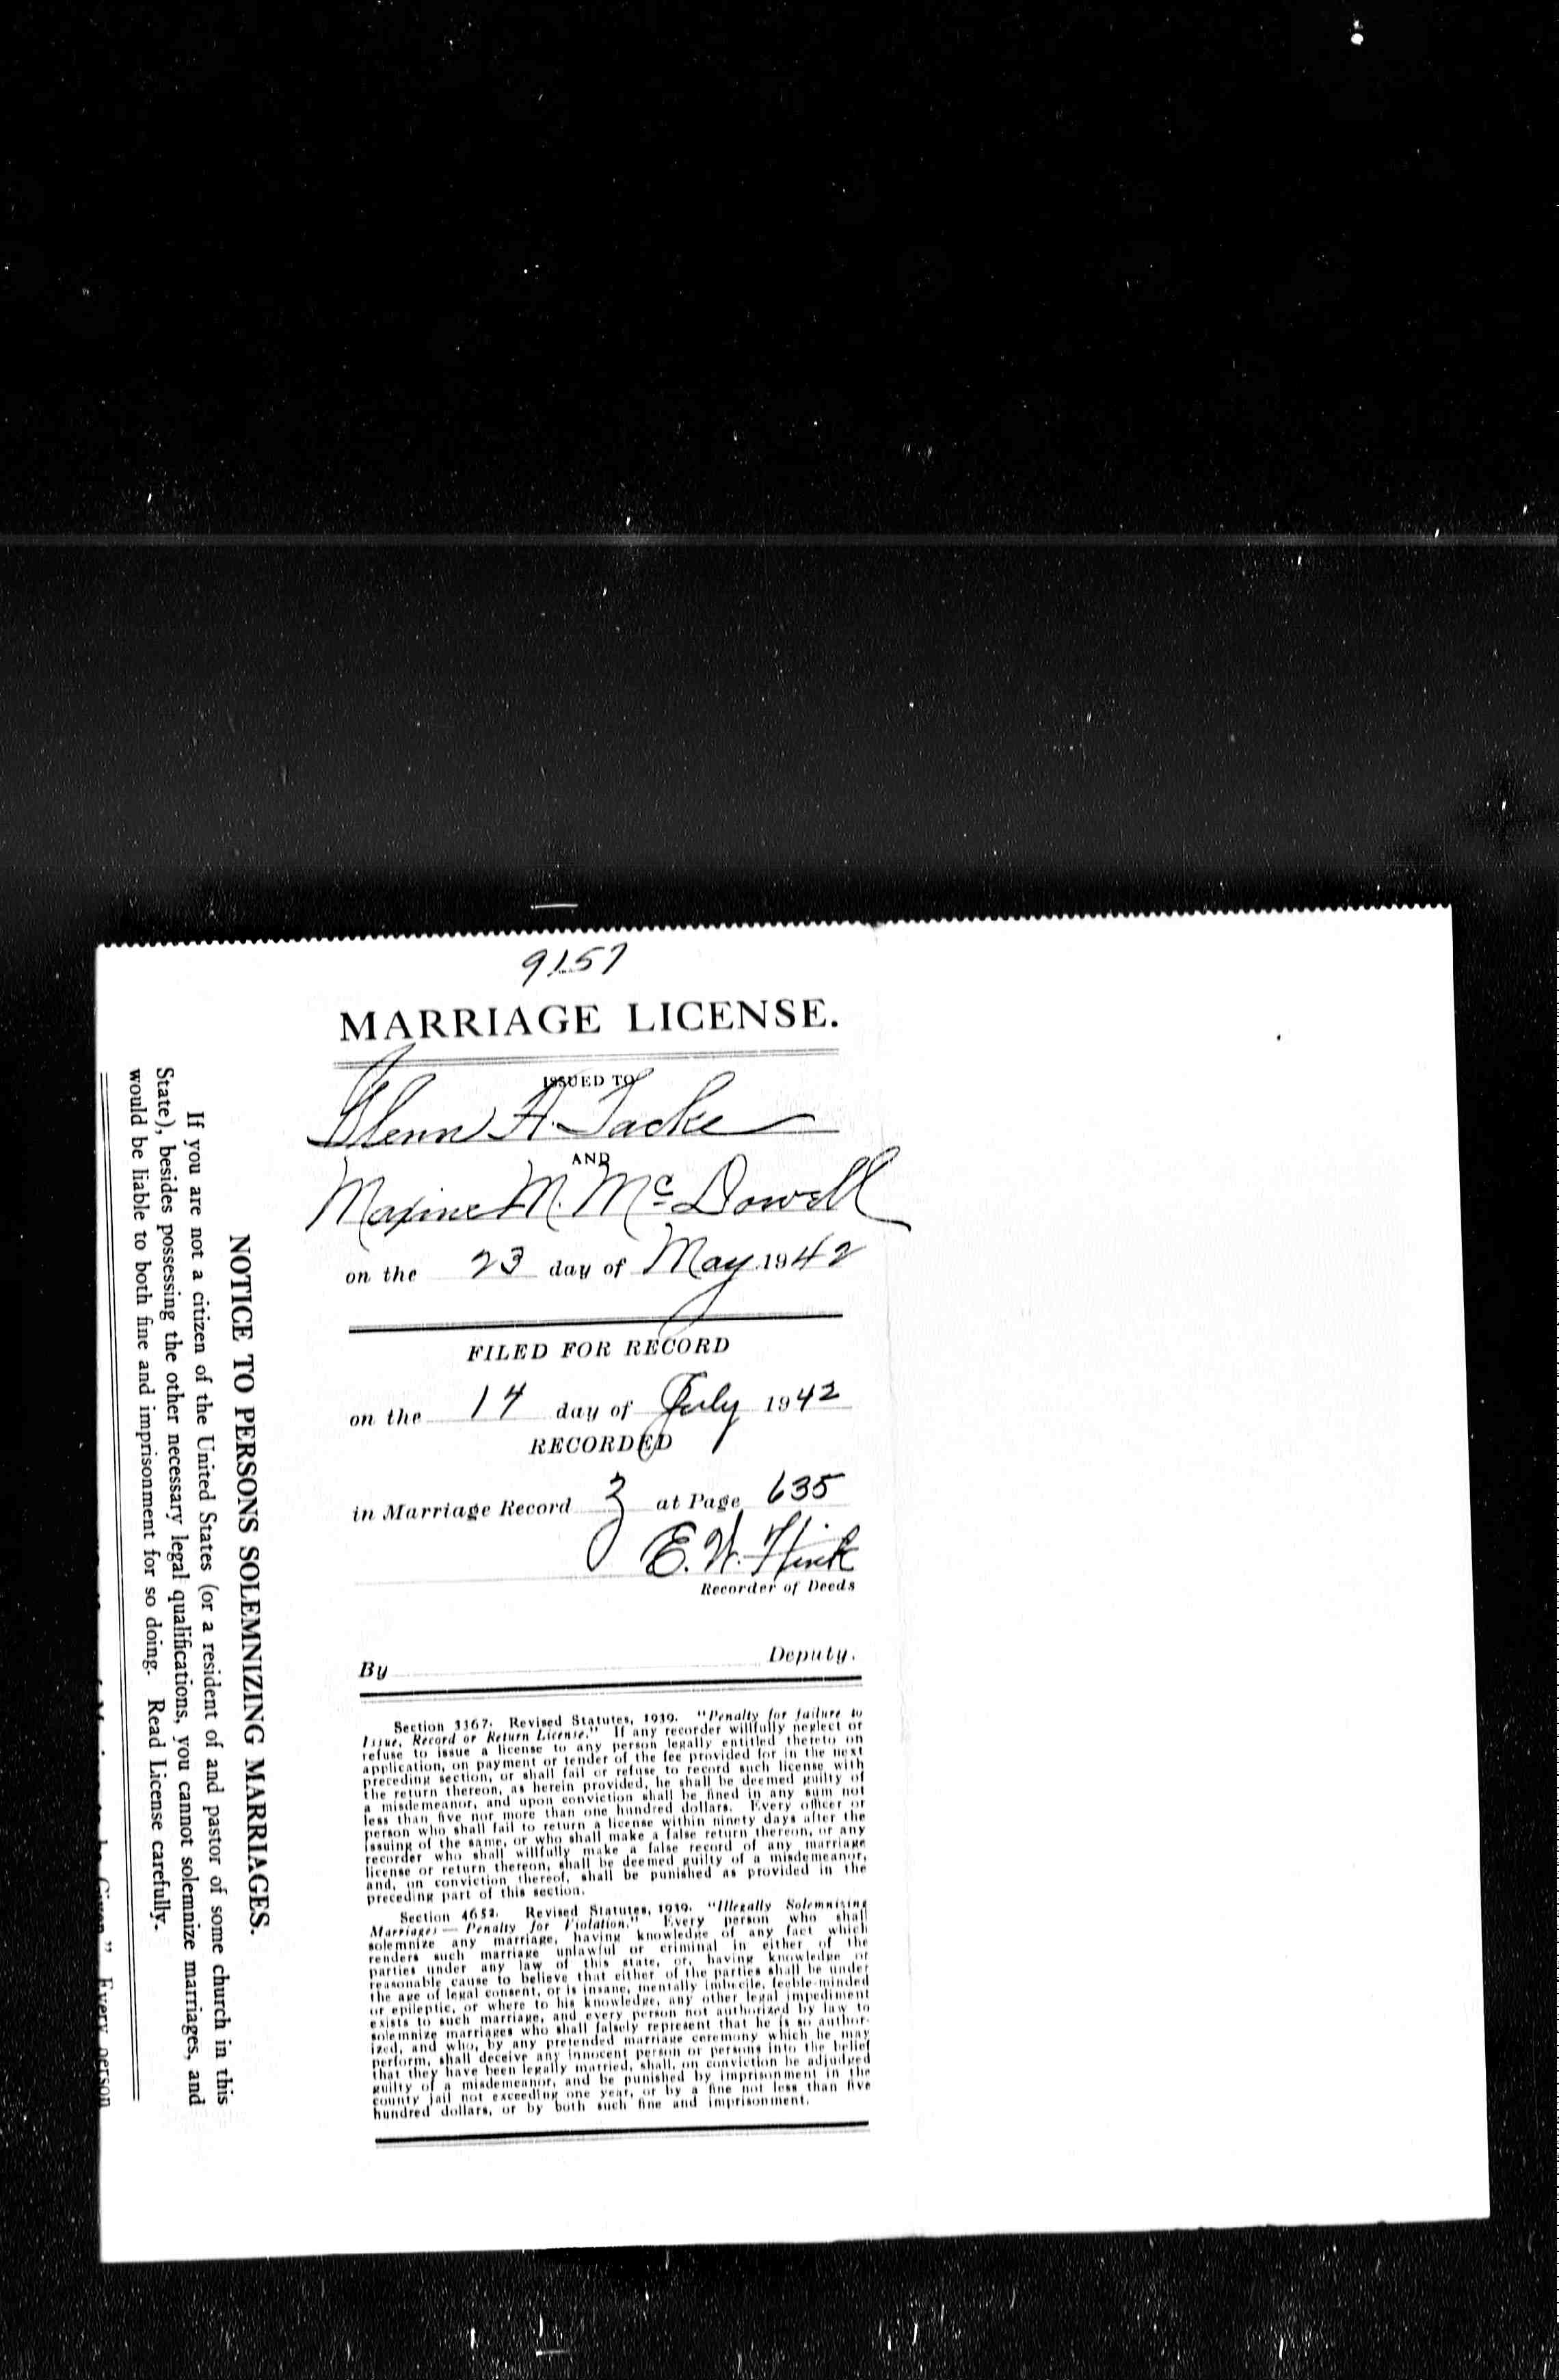 9157
MARRIAGE LICENSE.
ISSUED TO
Glenn A. Tacke
AND
Maxine M. McDowell
on the 23 day of May 1942
FILED FOR RECORD
on the 14 day of July 1942
RECORDED
in Marriage Record 3 at Page 635
E. W. Flink
Recorder of Deeds
By Deputy.
Section 3367. Revised Statutes, 1939. "Penalty for failure to
Issue, Record or Return License." If any recorder willfully neglect or
refuse to issue a license to any person legally entitled thereto on
application, on payment or tender of the fee provided for in the next
preceding section, or shall fail or refuse to record such license with
the return thereon, as herein provided, he shall be deemed guilty of
a misdemeanor, and upon conviction shall be fined in any sum not
less than five nor more than one hundred dollars. Every officer or
person who shall fail to return a license within ninety days after the
issuing of the same, or who shall make a false return thereon, or any
recorder who shall willfully make a false record of any marriage
license or return thereon, shall be deemed guilty of a misdemeanor,
and, on conviction thereof, shall be punished as provided in the
preceding part of this section.
Section 4652. Revised Statutes, 1939. "Illegally Solemnizing
Marriages — Penalty for Violation." Every person who shall
solemnize any marriage, having knowledge of any fact which
renders such marriage unlawful or criminal in either of the
parties under any law of this state, or, having knowledge or
reasonable cause to believe that either of the parties shall be under
the age of legal consent, or is insane, mentally imbecile, feeble-minded
or epileptic, or where to his knowledge, any other legal impediment
exists to such marriage, and every person not authorized by law to
solemnize marriages who shall falsely represent that he is so author-
ized, and who, by any pretended marriage ceremony which he may
perform, shall deceive any innocent person or persons into the belief
that they have been legally married, shall, on conviction be adjudged
guilty of a misdemeanor, and be punished by imprisonment in the
county jail not exceeding one year, or by a fine not less than five
hundred dollars, or by both such fine and imprisonment.
NOTICE TO PERSONS SOLEMNIZING MARRIAGES.
If you are not a citizen of the United States (or a resident of and pastor of some church in this
State), besides possessing the other necessary legal qualifications, you cannot solemnize marriages, and
would be liable to both fine and imprisonment for so doing. Read License carefully.
Given." Every person